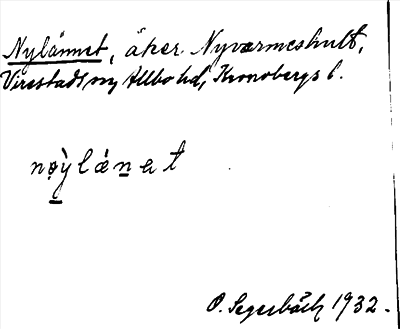 Nylännet, åker Nyvärmeshult,
Virestads sn, Allbo hd, Kronobergs l.
nø̀ylánat
P. Segerbäck 1932.